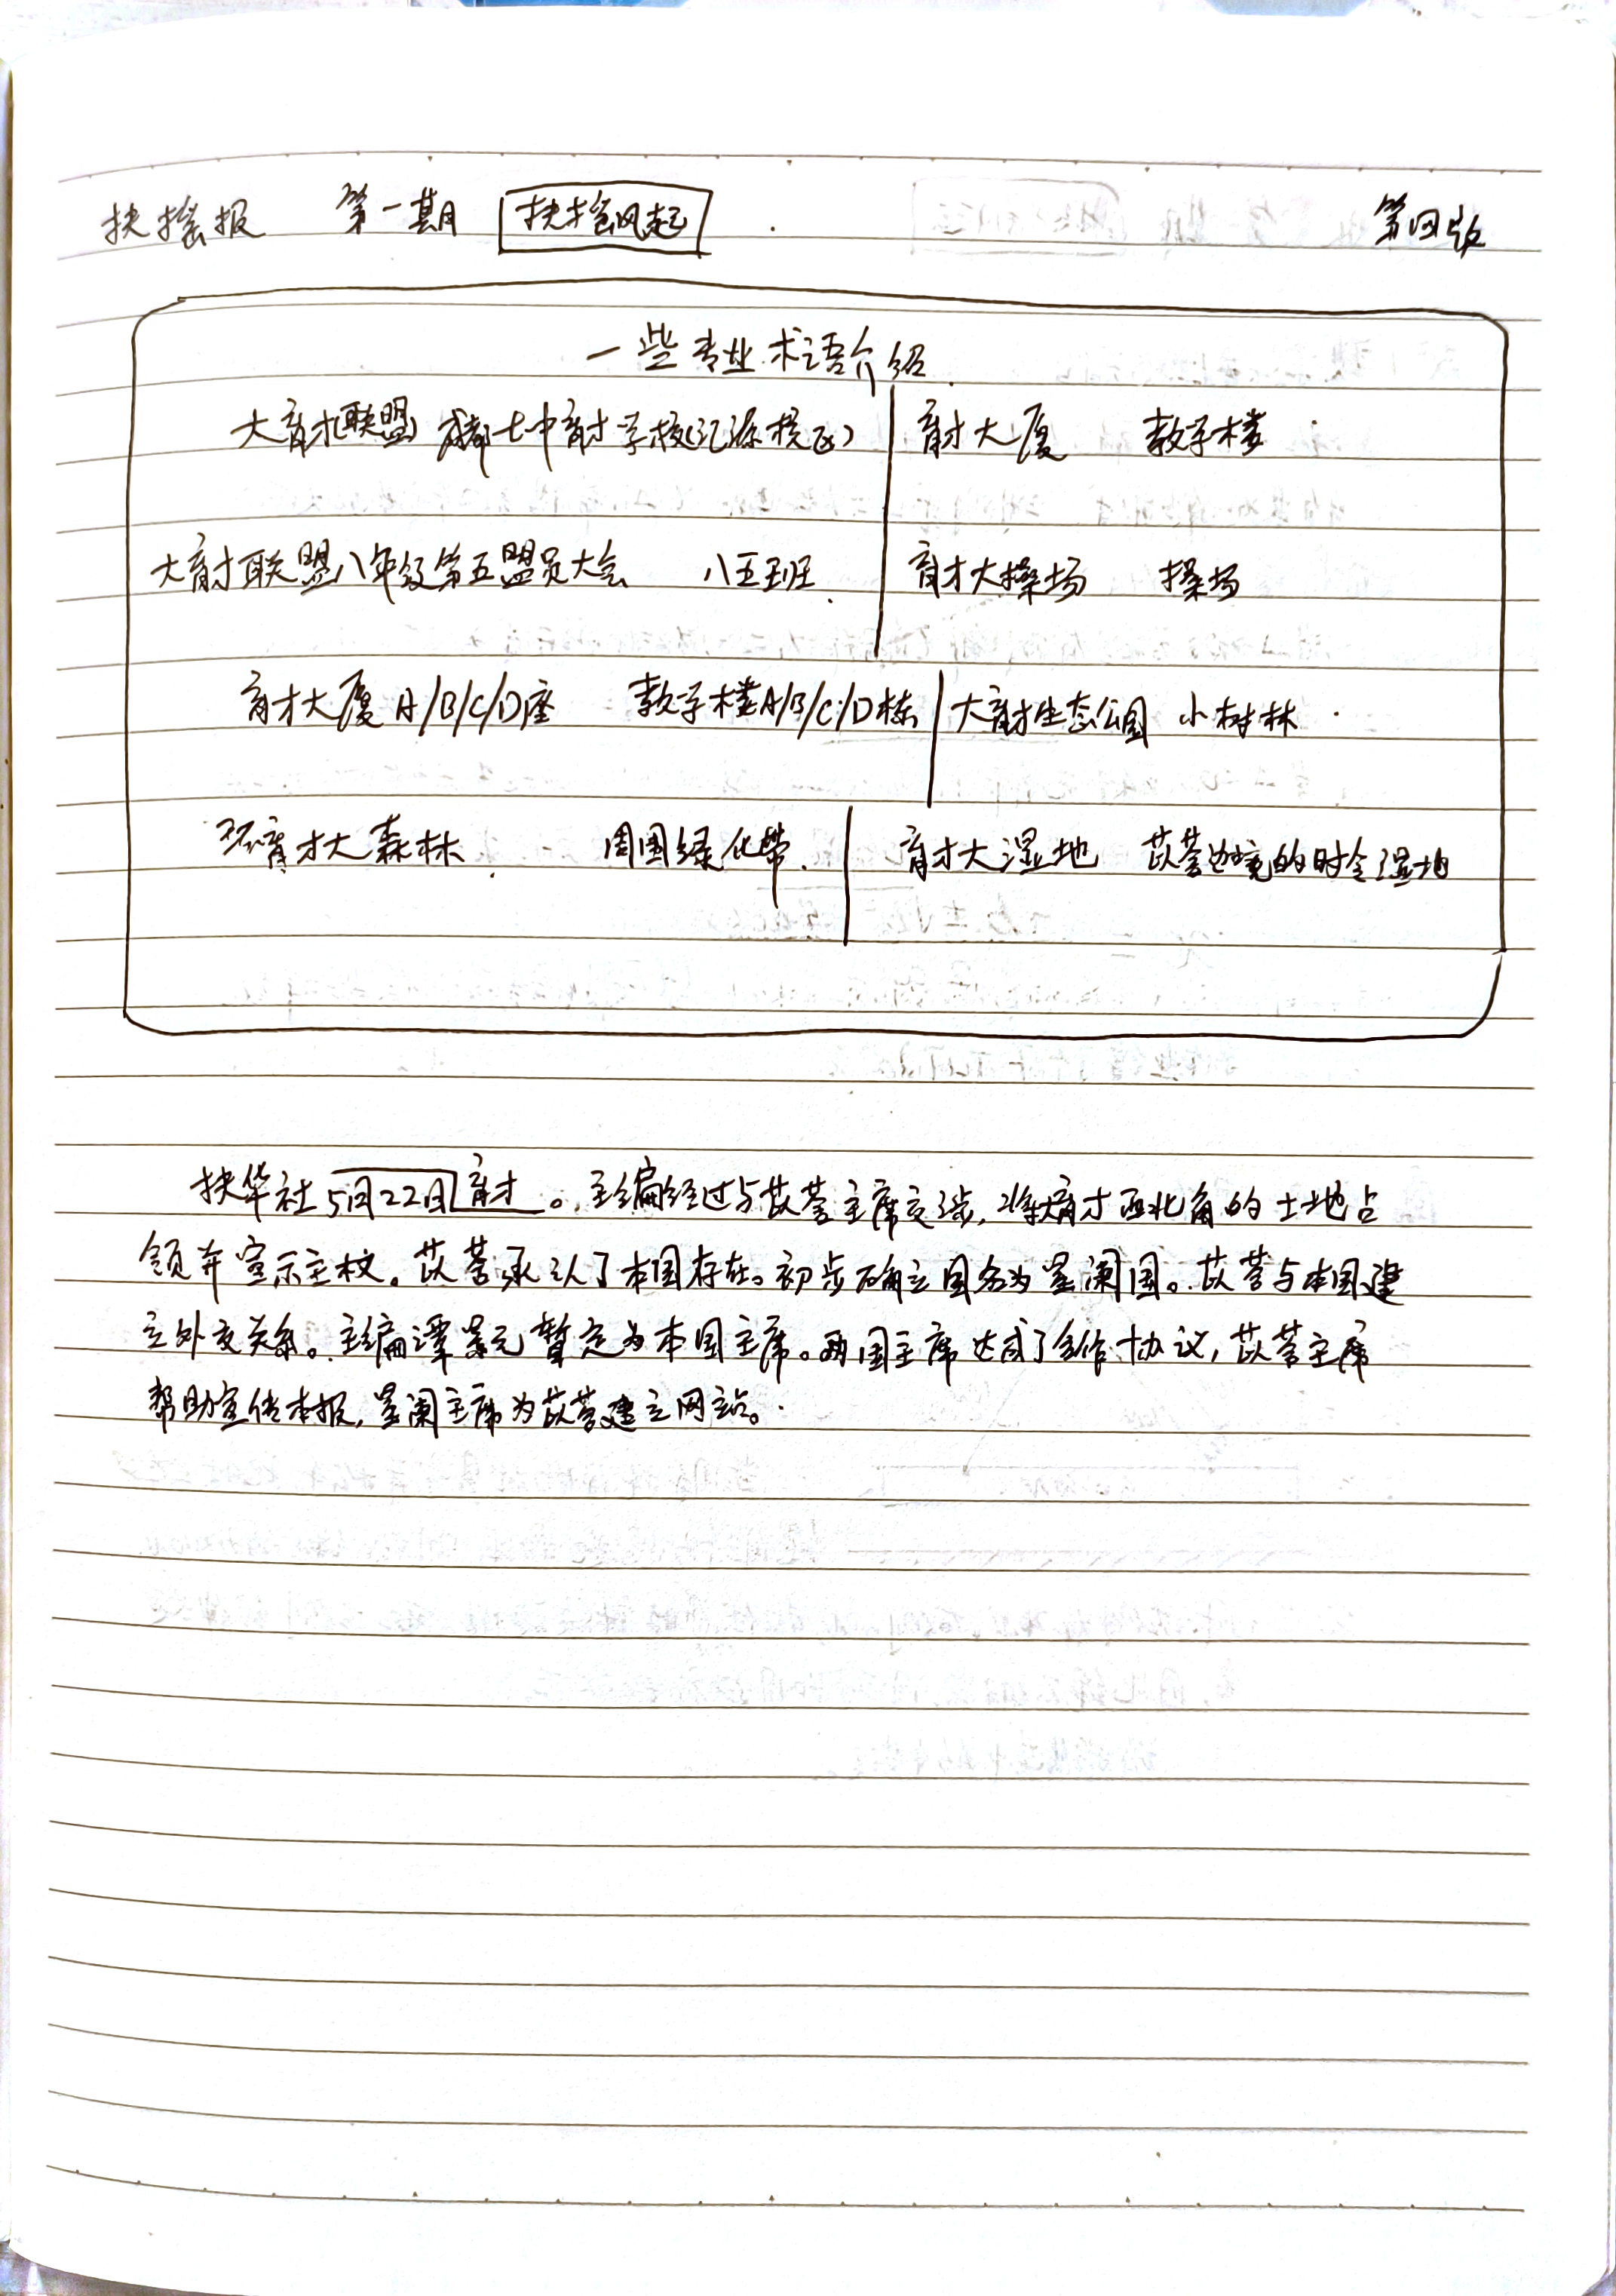 扶摇报 第一期 扶摇风起 第四版
一些专业术语介绍
大育才联盟 成都七中育才学校(汇源校区) 育才大厦 教学楼
大育才联盟八年级第五盟员大会 八五班 育才大操场 操场
育才大厦A/B/C/D座 教学楼A/B/C/D栋 大育才生态公园 小树林
环育才大森林 周围绿化带 育才大湿地 苡营边境的时令湿地
扶华社5月22日育才。主编经过与苡营主席交涉,将大育才西北角的土地占
领并宣示主权。苡营承认了本国存在。初步确立国名为星阑国。苡营与本国建
立外交关系。主编谭景元暂定为本国主席。两国主席达成了合作协议,苡营主席
帮助宣传本报,星阑主席为苡营建立网站。